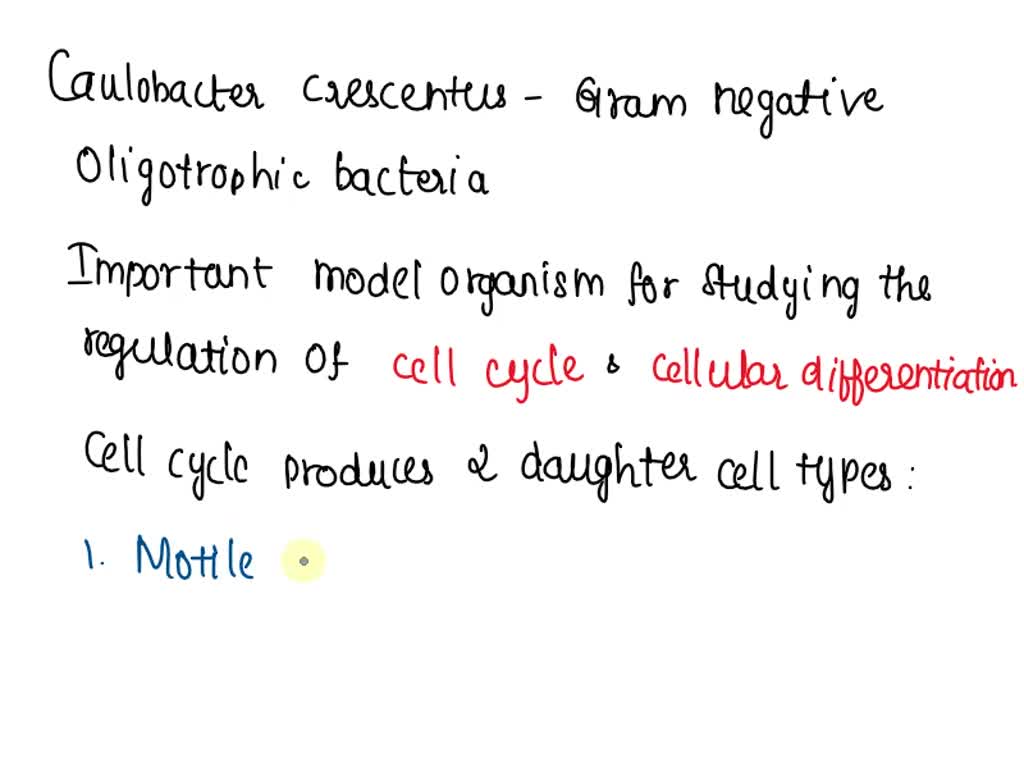 Caulobacter crescentus - Gram negative
Oligotrophic bacteria
Important model organism for studying the
regulation of cell cycle & cellular differentiation
Cell cycle produces 2 daughter cell types:
1. Motile